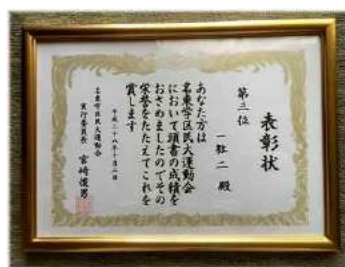 表彰状
第三位
一社二 殿
あなた方は
名東学区民大運動会
において頭書の成績を
おさめましたのでその
栄誉をたたえてこれを
賞します
平成二十八年十月二日
名東学区民大運動会
実行委員長 宮崎俊男